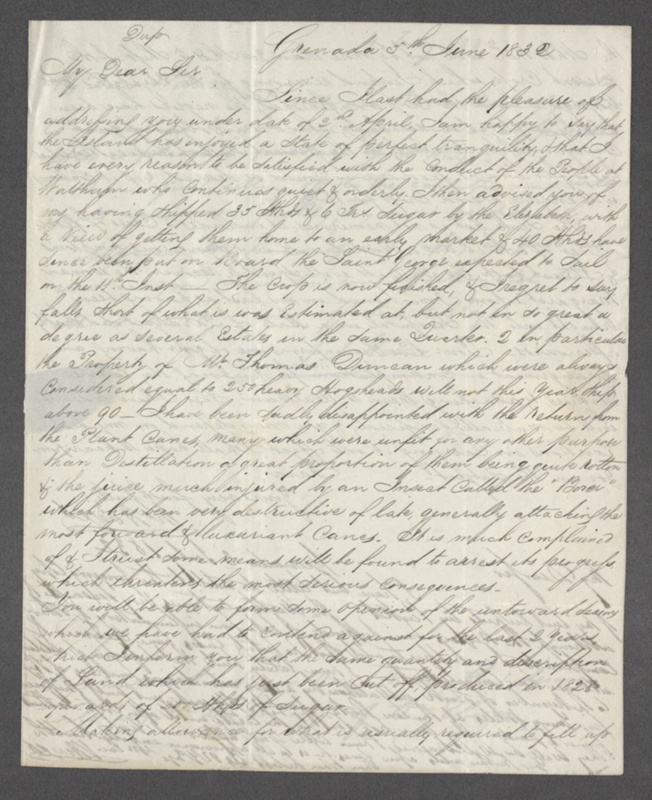 Dup
Grenada 5th June 1832
My Dear Sir
Since I last had the pleasure of
addressing you under date of 2nd April, I am happy to say that
the Island has enjoyed a state of perfect tranquility, & that I
have every reason to be satisfied with the conduct of the People at
Waltham who continues quiet & orderly. I then advised you of
my having shipped 35 Hhds & 6 Trs Sugar by the Elizabeth, with
a view of getting them home to an early market & 40 Hhds have
since been put on Board the Saint George expected to Sail
on the 11th Inst — The Crop is now finished, & I regret to say
falls short of what is was Estimated at, but not in so great a
degree as several Estates in the same Quarter. 2 in particular
the Property of Mr. Thomas Duncan which were always
Considered equal to 250 heavy Hogsheads will not this Year Ship
above 90 — I have been sadly disappointed with the return from
the Plant Canes, many which were unfit for any other purpose
than Distillation a great proportion of them being quite rotten
& the juice much injured by an Insect Called the "Borer"
which has been very destructive of late, generally attacking the
most forward & luxuriant Canes. It is much Complained
of & I trust some means will be found to arrest its progress
which threatens the most serious Consequences.
You will be able to form some opinion of the untoward
which we have had to contend against for the last 2 Years
when I inform you that the same quantity and description
of Land which has just been Cut off, produced in 1828
upwards of Hhds of Sugar.
Making allowance for what is usually required to fill up